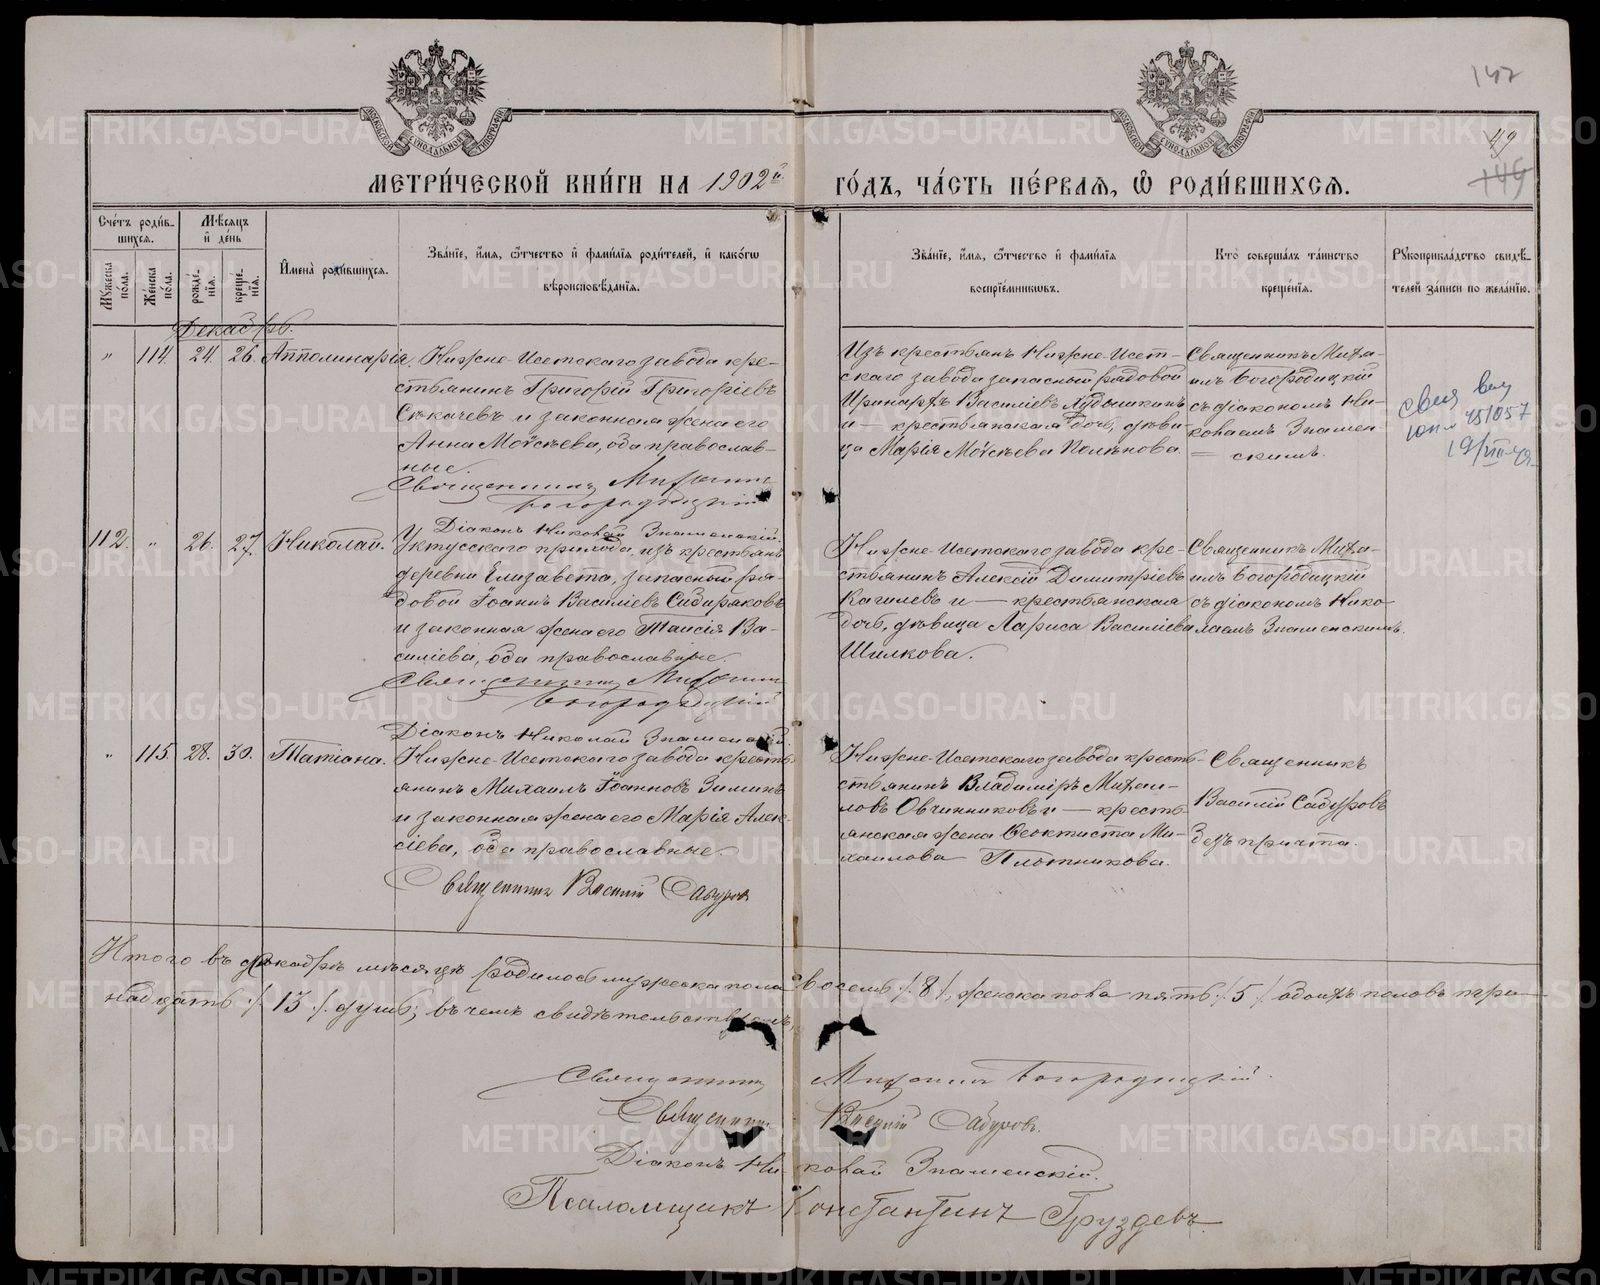 147
49
149
МОСКОВСКОЙ СѴНОДАЛЬНОЙ ТИПОГРАФІИ
МОСКОВСКОЙ СѴНОДАЛЬНОЙ ТИПОГРАФІИ
МЕТРИ́ЧЕСКОЙ КНИ́ГИ НА 1902й ГО́ДЪ, ЧА́СТЬ ПЕ́РВАЯ, Ѡ РОДИ́ВШИХСЯ.
Сче́тъ роди́в-
шихся.
Мꙋ́жеска по́ла.
Же́нска по́ла.
Мѣ́сяцъ
и҆ де́нь
рожде́-
нїя.
креще́-
нїя.
И҆мена̀ роди́вшихся.
Зва́нїе, и҆́мя, ѻ҆́тчество и҆ фами́лїя роди́телей, и҆ како́гѡ
вѣроисповѣ́данїя.
Зва́нїе, и҆́мя, ѻ҆́тчество и҆ фами́лїя
воспрїе́мникѡвъ.
Кто̀ соверша́лъ та́инство
креще́нїя.
Рꙋкоприкла́дство свидѣ́-
телей за́писи по жела́нїю.
Декабрь.
" 114. 24. 26. Апполинарія.
Нижне-Исетскаго завода кре-
стьянинъ Григорій Григоріевъ
Секачевъ и законная жена его
Анна Моѵсѣева, оба православ-
ные.
Священникъ Мифаилъ
Богородицкій
Діаконъ Николай Знаменскій.
Изъ крестьянъ Нижне-Исет-
скаго завода запасный рядовой
Иринархъ Василіевъ Лудошкинъ
и — крестьянская дочь, дѣви-
ца Марія Моѵсѣева Полѣнова
Священникъ Миха-
илъ Богородицкій
съ діакономъ Ни-
колаемъ Знамен-
скимъ.
151057
19/VIII-49
112. " 26. 27. Николай.
Уктусскаго прихода, изъ крестьянъ
деревни Елизавета, запасный ря-
довой Іоаннъ Василіевъ Сибиряковъ
и законная жена его Таисія Ва-
силіева, оба православные.
Священникъ Михаилъ
Богородицкій
Діаконъ Николай Знаменскій.
Нижне-Исетскаго завода кре-
стьянинъ Алексій Димитріевъ
Кагилевъ и — крестьянская
дочь, дѣвица Лариса Василіева
Шилкова.
Священникъ Миха-
илъ Богородицкій
съ діакономъ Нико-
лаемъ Знаменскимъ.
" 115. 28. 30. Татіана.
Нижне-Исетскаго завода кресть-
янинъ Михаилъ Іоанновъ Зиминъ
и законная жена его Марія Алек-
сіева, оба православные.
Священникъ Василій Сабуровъ
Нижне-Исетскаго завода кресть-
стьянинъ Владиміръ Михаи-
ловъ Овчинниковъ и — кресть-
янская жена Ѳеоктиста Ми-
хаилова Плотникова.
Священникъ
Василій Сабуровъ
безъ причта.
Итого въ декабрѣ мѣсяцѣ родилось мужеска пола восемь /8/, женска пола пять /5/ обоихъ половъ три-
надцать /13/ душъ; въ чемъ свидѣтельствуемъ
Священникъ Михаилъ Богородицкій.
Священникъ Василій Сабуровъ.
Діаконъ Николай Знаменскій.
Псаломщикъ Константинъ Груздевъ
METRIKI.GASO-URAL.RU